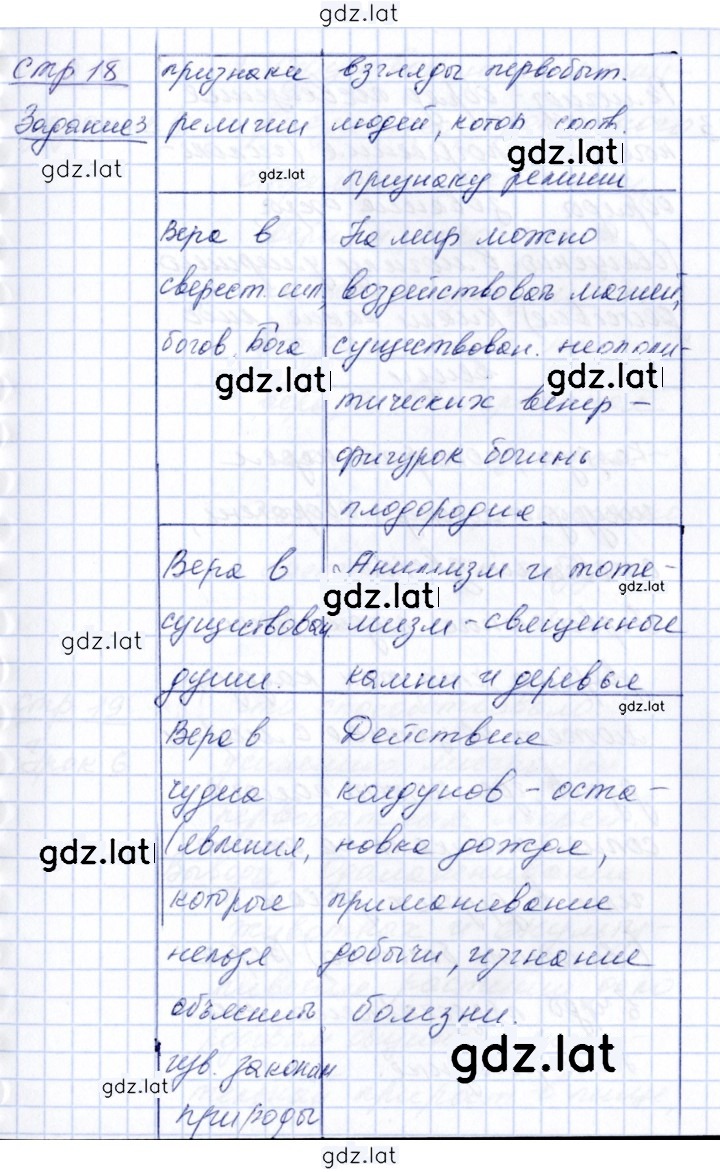 gdz.lat
стр 18
Задание 3
gdz.lat
признаки
религии
gdz.lat
взгляды первобыт.
людей, котор соотв.
gdz.lat
признаку религии
Вера в
сверхест. сил,
богов. Бога
gdz.lat
На мир можно
воздействовать магией,
существован. неополи-
gdz.lat
тических венер -
фигурок богинь
плодородия.
Вера в
существован
души.
gdz.lat
gdz.lat
Анимизм и тоте-
gdz.lat
мизм - священные
камни и деревья
gdz.lat
Вера в
чудеса
(явления,
которые
нельзя
объяснить
изв. законам
природы
gdz.lat
gdz.lat
Действия
колдунов - оста-
новка дождя,
приманивание
добычи, изгнание
болезни.
gdz.lat
gdz.lat